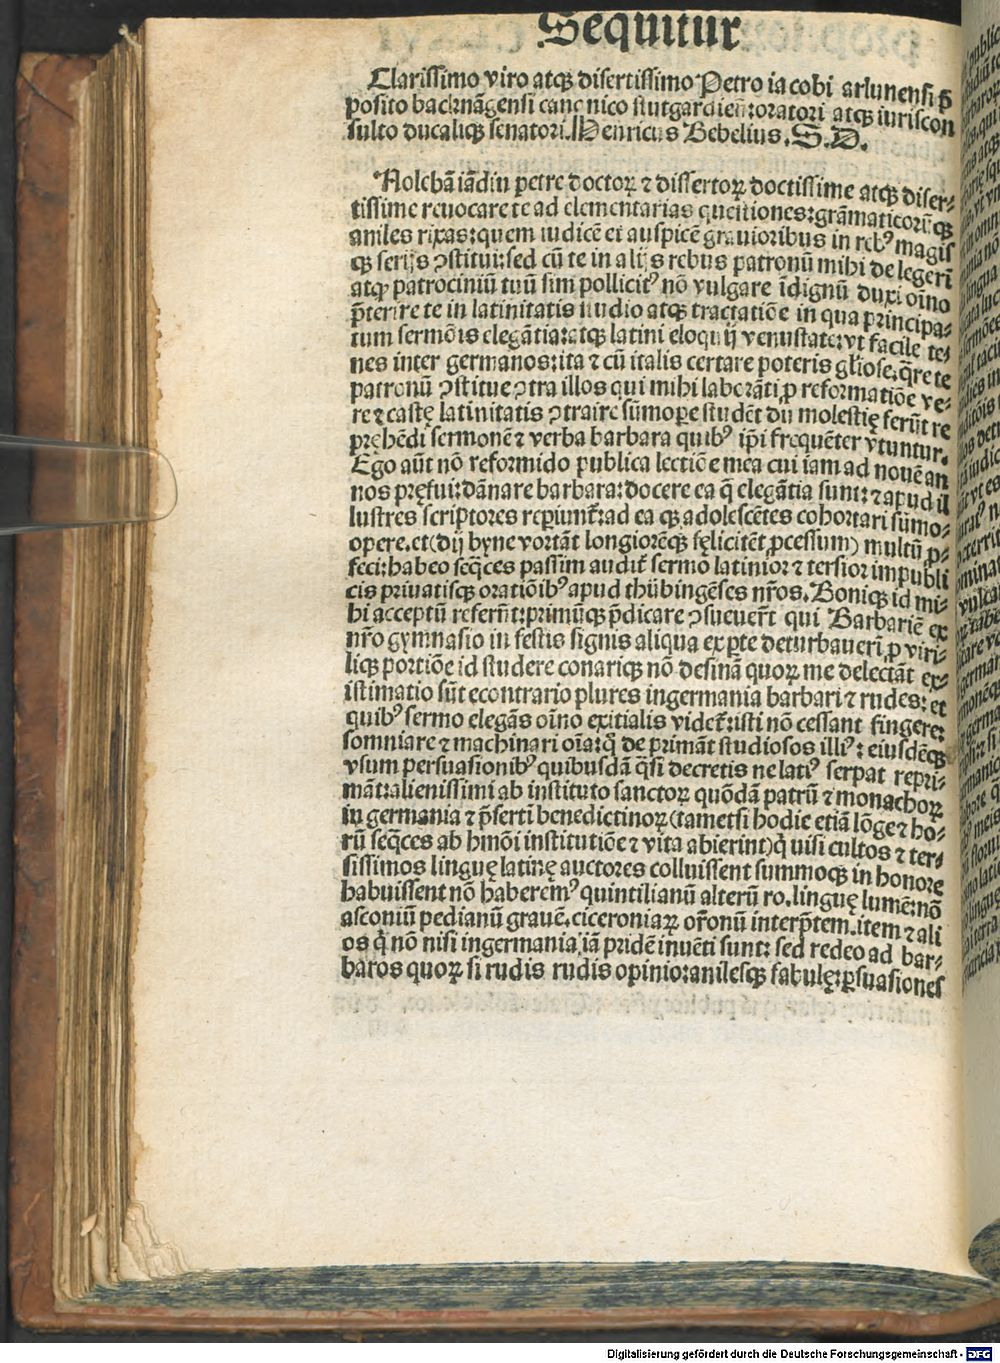 Sequitur
Clarissimo viro atqꝫ disertissimo Petro iacobi arlunensi p̄
posito backnāgensi canonico stutgardien̄: oratori atqꝫ iuriscon
sulto ducaliqꝫ senatori. Henricus Bebelius. S. D.
Nolebā iādiu petre doctoꝝ ⁊ dissertoꝝ doctissime atqꝫ diser⸗
tissime reuocare te ad elementarias questiones: grāmaticorū qꝫ
aniles rixas: quem iudicē et auspicē grauioribus in rebꝰ magis
qꝫ serijs ꝯstitui: sed cū te in alijs rebus patronū mihi delegerī
atqꝫ patrociniū tuū sim pollicitꝰ nō vulgare īdignū duxi oīno
p̄terire te in latinitatis studio atqꝫ tractatiōe in qua principa⸗
tum sermōis elegātia: atqꝫ latini eloquij venustate: vt facile te⸗
nes inter germanos: ita ⁊ cū italis certare poteris gl̄iose. q̄re te
patronū ꝯstitue ꝯtra illos qui mihi laborāti ꝓ reformatiōe ve⸗
re ⁊ castę latinitatis ꝯtraire sūmoꝑe studēt dū molestię ferūt re
prehēdi sermonē ⁊ verba barbara quibꝰ ip̄i frequēter vtuntur.
Ego aūt nō reformido publica lectiōe mea cui iam ad nouē an
nos pręfui: dānare barbara: docere ea q̄ elegātia sunt: ⁊ apud il
lustres scriptores reperiunt̄: ad ea qꝫ adolescētes cohortari sūmo⸗
opere. et (dij byne vortāt longiorēqꝫ fęlicitēt ꝓcessum) multū ꝓ⸗
feci: habeo seq̄ces passim audit̄ sermo latinior ⁊ tersior in publi
cis priuatisqꝫ oratiōibꝰ apud thübingēses nr̄os. Boniqꝫ id mi⸗
hi acceptū referūt: primūqꝫ p̄dicare ꝯsueuer̄t qui Barbariē ex
nr̄o gymnasio in festis signis aliqua ex ꝑte deturbauerī, ꝓ viri⸗
liqꝫ portiōe id studere conariqꝫ nō desinā quoꝝ me delectāt ex⸗
istimatio sūt econtrario plures in germania barbari ⁊ rudes: et
quibꝰ sermo elegās oīno exitialis videt̄: isti nō cessant fingere:
somniare ⁊ machinari oīa: q̇ de primāt studiosos illiꝰ: eiusdēqꝫ
vsum persuasionibꝰ quibusdā q̄si decretis ne latiꝰ serpat repri⸗
māt: alienissimi ab instituto sanctoꝝ quōdā patrū ⁊ monachoꝝ
in germania ⁊ p̄serti benedictinoꝝ (tametsi hodie etiā lōge ⁊ ho⸗
rū seq̄ces ab hmōi institutiōe ⁊ vita abierint) q̇ uisi cultos ⁊ ter⸗
sissimos linguę latinę auctores colluissent summoqꝫ in honore
habuissent nō haberemꝰ quintilianū alterū ro. linguę lumē: nō
asconiū pedianū grauē. ciceroniaꝝ or̄onū interp̄tem. item ⁊ ali
os q̇ nō nisi in germania iā pridē inuēti sunt: sed redeo ad bar⸗
baros quoꝝ si rudis rudis opinio: anilesqꝫ fabulę: ꝑsuasiones
Digitalisierung gefördert durch die Deutsche Forschungsgemeinschaft - DFG